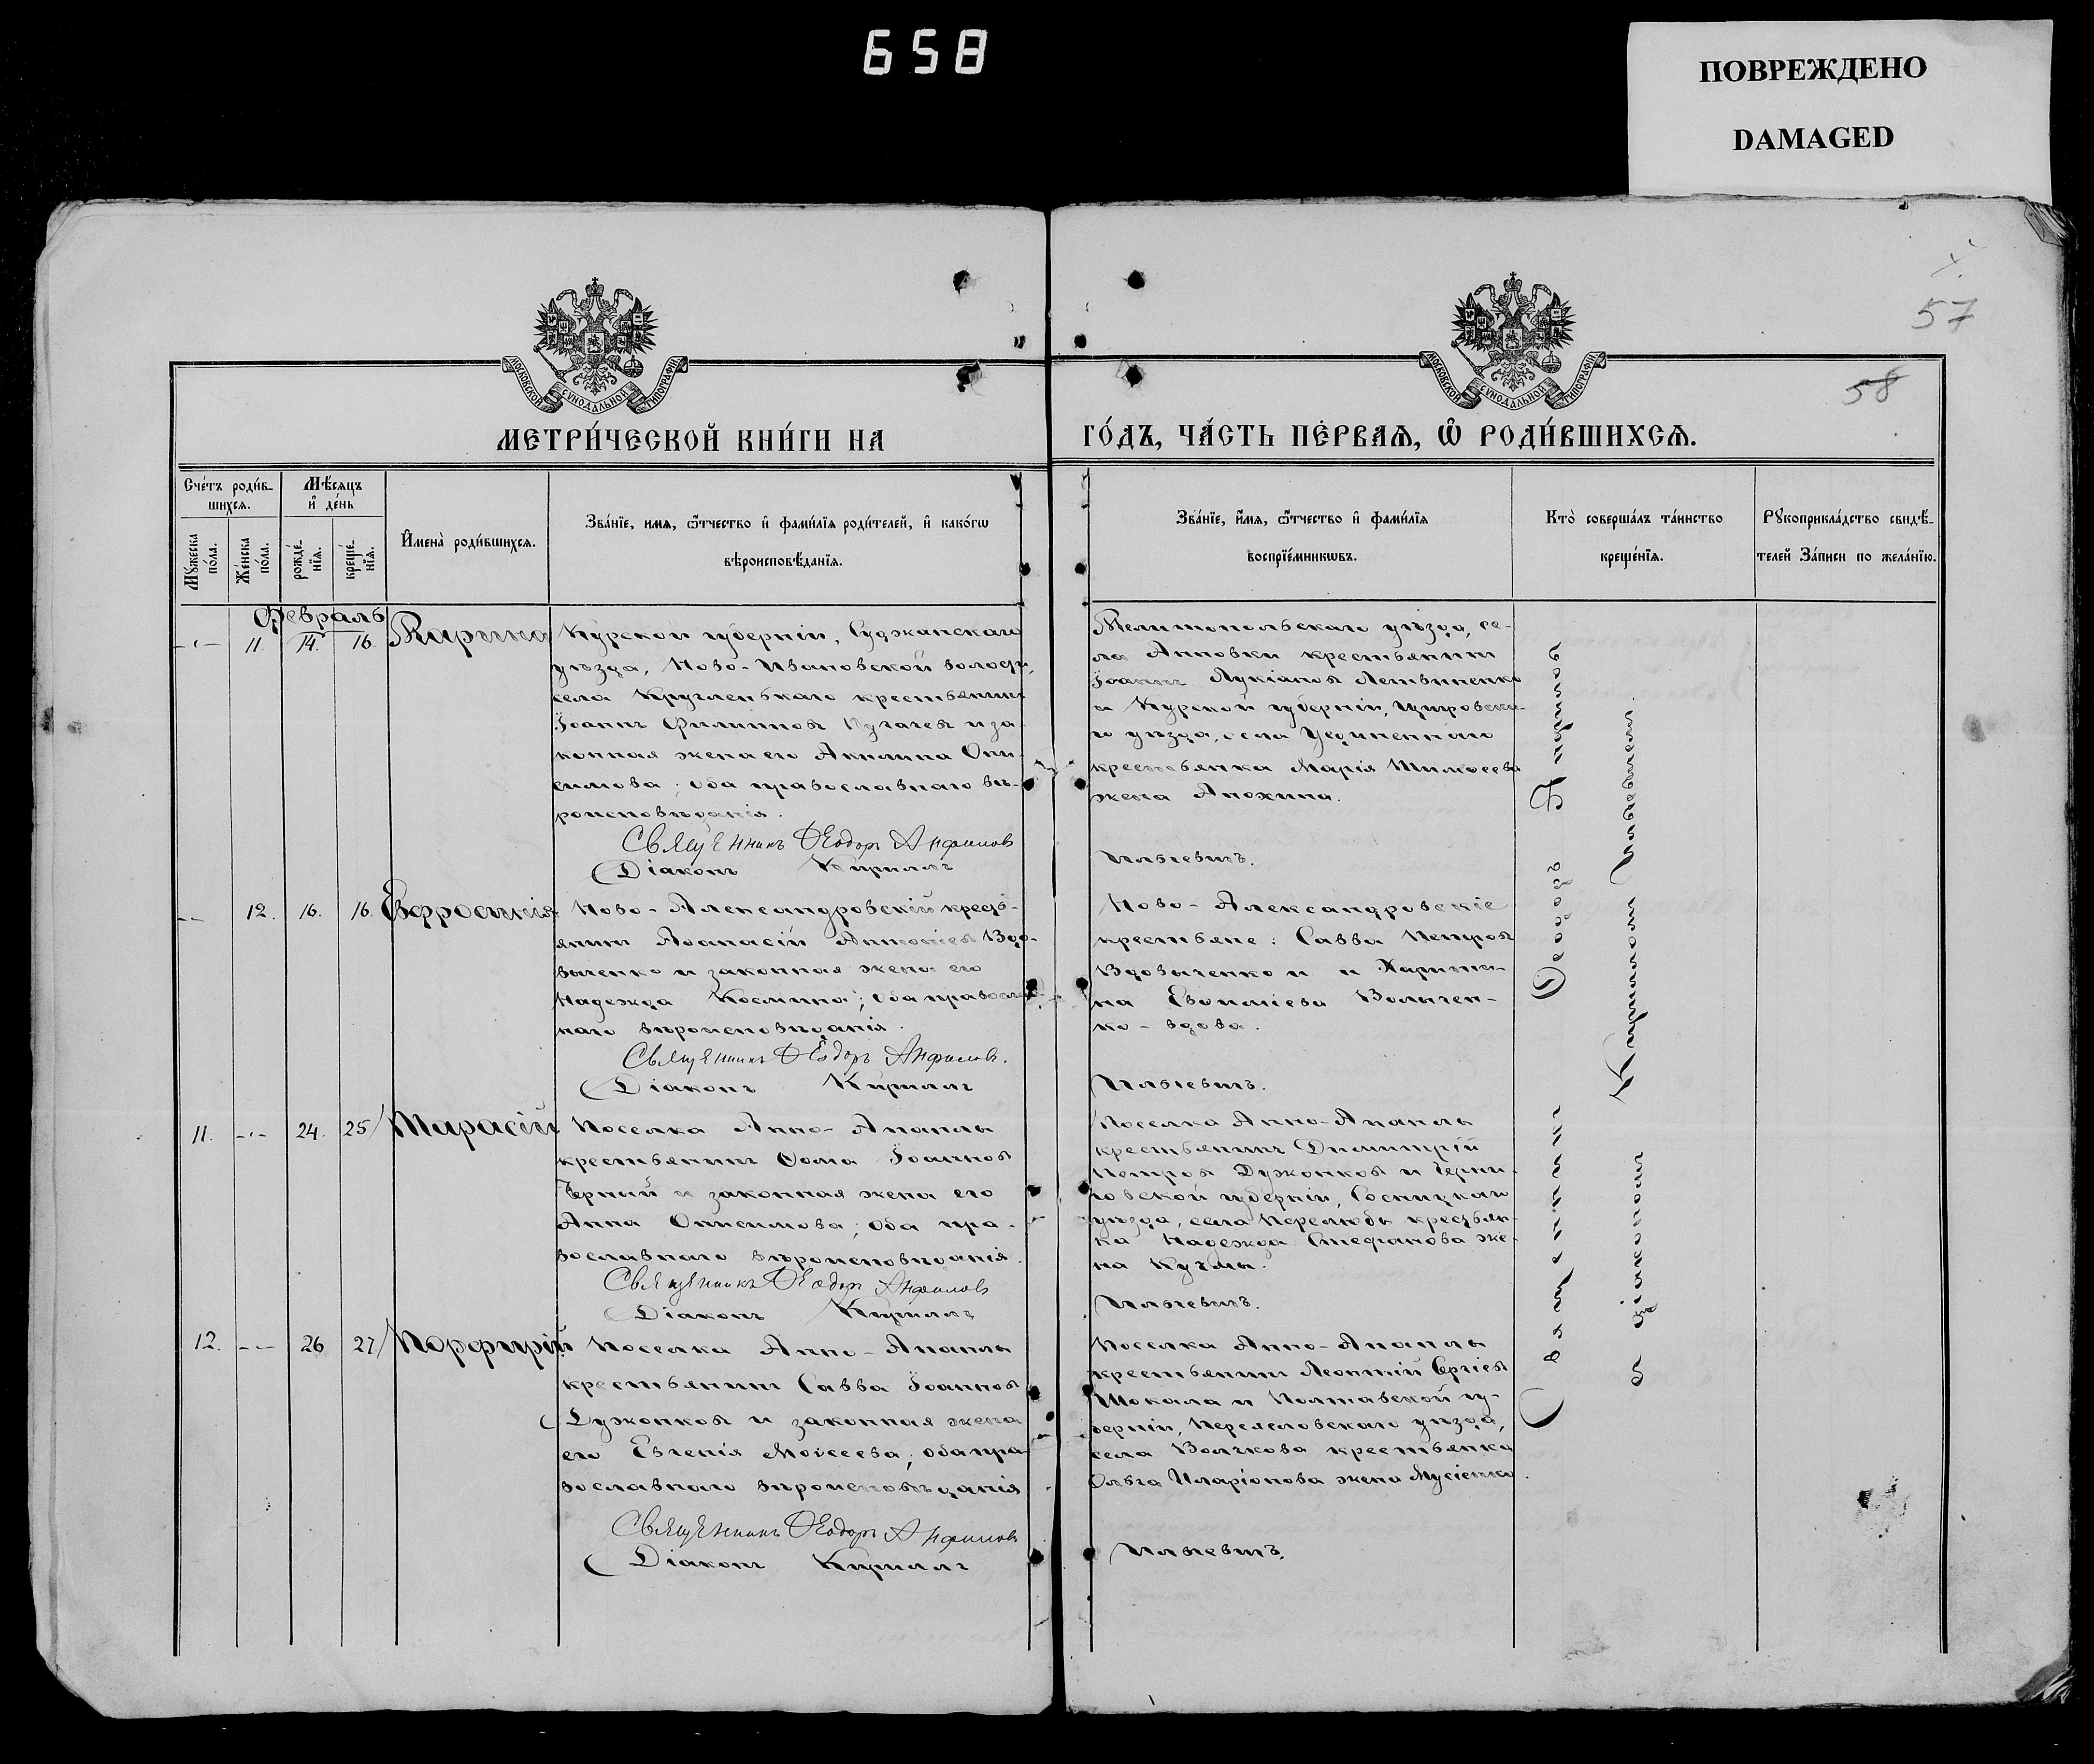 658
ПОВРЕЖДЕНО
DAMAGED
57
58
МОСКОВСКОЙ СѴНОДАЛЬНОЙ ТИПОГРАФІИ
МОСКОВСКОЙ СѴНОДАЛЬНОЙ ТИПОГРАФІИ
МЕТРИ́ЧЕСКОЙ КНИ́ГИ НА
ГО́ДЪ, ЧА́СТЬ ПЕ́РВАѦ, Ѿ РОДИ́ВШИХСѦ.
Сче́тъ роди́в-
шихсѧ.
Мѣ́сѧцъ
и҆ де́нь
Мꙋ́жеска
по́ла.
Же́нска
по́ла.
рожде́-
нїѧ.
креще́-
нїѧ.
И҆мена̀ роди́вшихсѧ.
Зва́нїе, имѧ, ѻ҆́тчество и҆ фами́лїѧ роди́телей, и҆ како́гѡ
вѣроисповѣ́данїѧ.
Зва́нїе, и҆мѧ, ѻ҆́тчество и҆ фами́лїѧ
воспрїе́мникѡвъ.
Кто̀ соверша́лъ та́инство
креще́нїѧ.
Рꙋкоприкла́дство свидѣ́-
телей За́писи по жела́нїю.
Февраль
11. 14. 16. Марина
Курской губерніи, Суджанскаго
уѣзда, Ново-Ивановской волости,
села Кругленькаго крестьянинъ
Іоаннъ Филипповъ Пугачевъ и за-
конная жена его Акилина Они-
симова; оба православнаго вѣ-
роисповѣданія.
Священникъ Ѳеодоръ Анфиловъ
Діаконъ Кириллъ
Мелитопольскаго уѣзда, се-
ла Анновки крестьянинъ
Іоаннъ Лукіановъ Летвиненко
и Курской губерніи, Щигровска-
го уѣзда, села Уединеннаго
крестьянка Марія Тимоѳеева
жена Анохина.
Ильевичъ.
12. 16. 16. Евфросинія
Ново-Александровскій кресть-
янинъ Аѳанасій Антоніевъ Вдо-
выченко и законная жена его
Надежда Космина; оба православ-
наго вѣроисповѣданія.
Священникъ Ѳеодоръ Анфиловъ.
Діаконъ Кириллъ
Ново-Александровскіе
крестьяне: Савва Петровъ
Вдовыченко и и Харити-
на Евфиміева Волычен-
ко-вдова.
Ильевичъ.
11. 24. 25 Тарасій
Поселка Анно-Анапы
крестьянинъ Ѳома Іоанновъ
Черный и законная жена его
Анна Онисимова; оба пра-
вославнаго вѣроисповѣданія.
Священникъ Ѳеодоръ Анфиловъ
Діаконъ Кириллъ
Поселка Анно-Анапы
крестьянинъ Димитрій
Петровъ Дужонковъ и Черни-
говской губерніи, Сосницкаго
уѣзда, села Перелюбы крестьян-
ка Надежда Стефанова же-
на Кузмы.
Ильевичъ.
12. 26 27 Порфирій
Поселка Анно-Анапы
крестьянинъ Савва Іоанновъ
Дужонковъ и законная жена
его Евгенія Моисеева; оба пра-
вославнаго вѣроисповѣданія
Священникъ Ѳеодоръ Анфиловъ
Діаконъ Кириллъ
Поселка Анно-Анапы
крестьянинъ Леонтій Сергіевъ
Шокала и Полтавской гу-
берніи, Переясловскаго уѣзда,
села Волчкова крестьянка
Ольга Иларіонова жена Мусіенко.
Ильевичъ.
Священникъ Ѳеодоръ Анфиловъ
съ діакономъ Кирилломъ Ильевичемъ